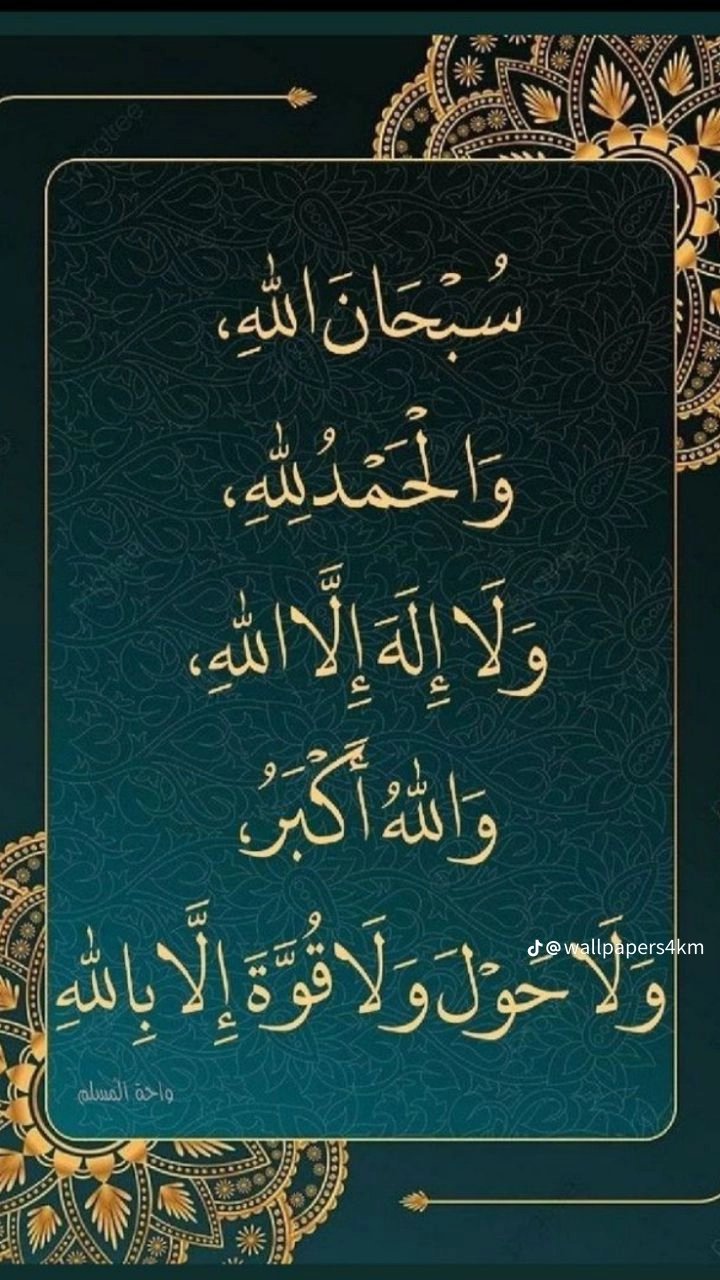 سُبْحَانَ اللهِ،
وَالْحَمْدُ لِلهِ،
وَلَا إِلَهَ إِلَّا اللهِ،
وَاللهُ أَكْبَرُ،
wallpapers4km@
وَلَا حَوْلَ وَلَا قُوَّةَ إِلَّا بِاللهِ
واحة المسلم